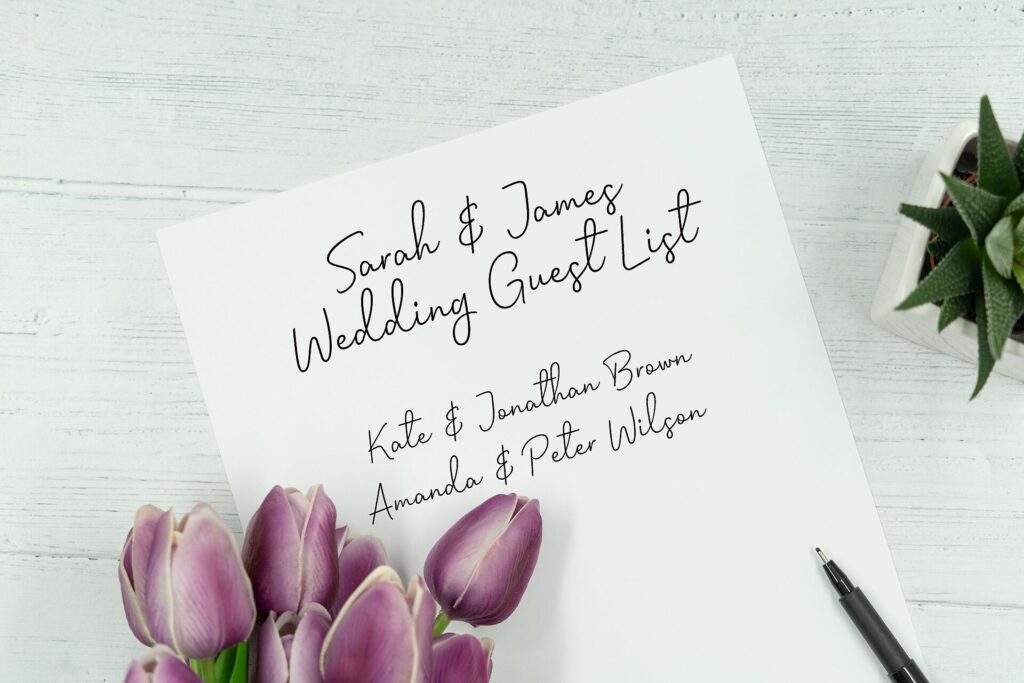 Sarah & James
Wedding Guest List
Kate & Jonathan Brown
Amanda & Peter Wilson